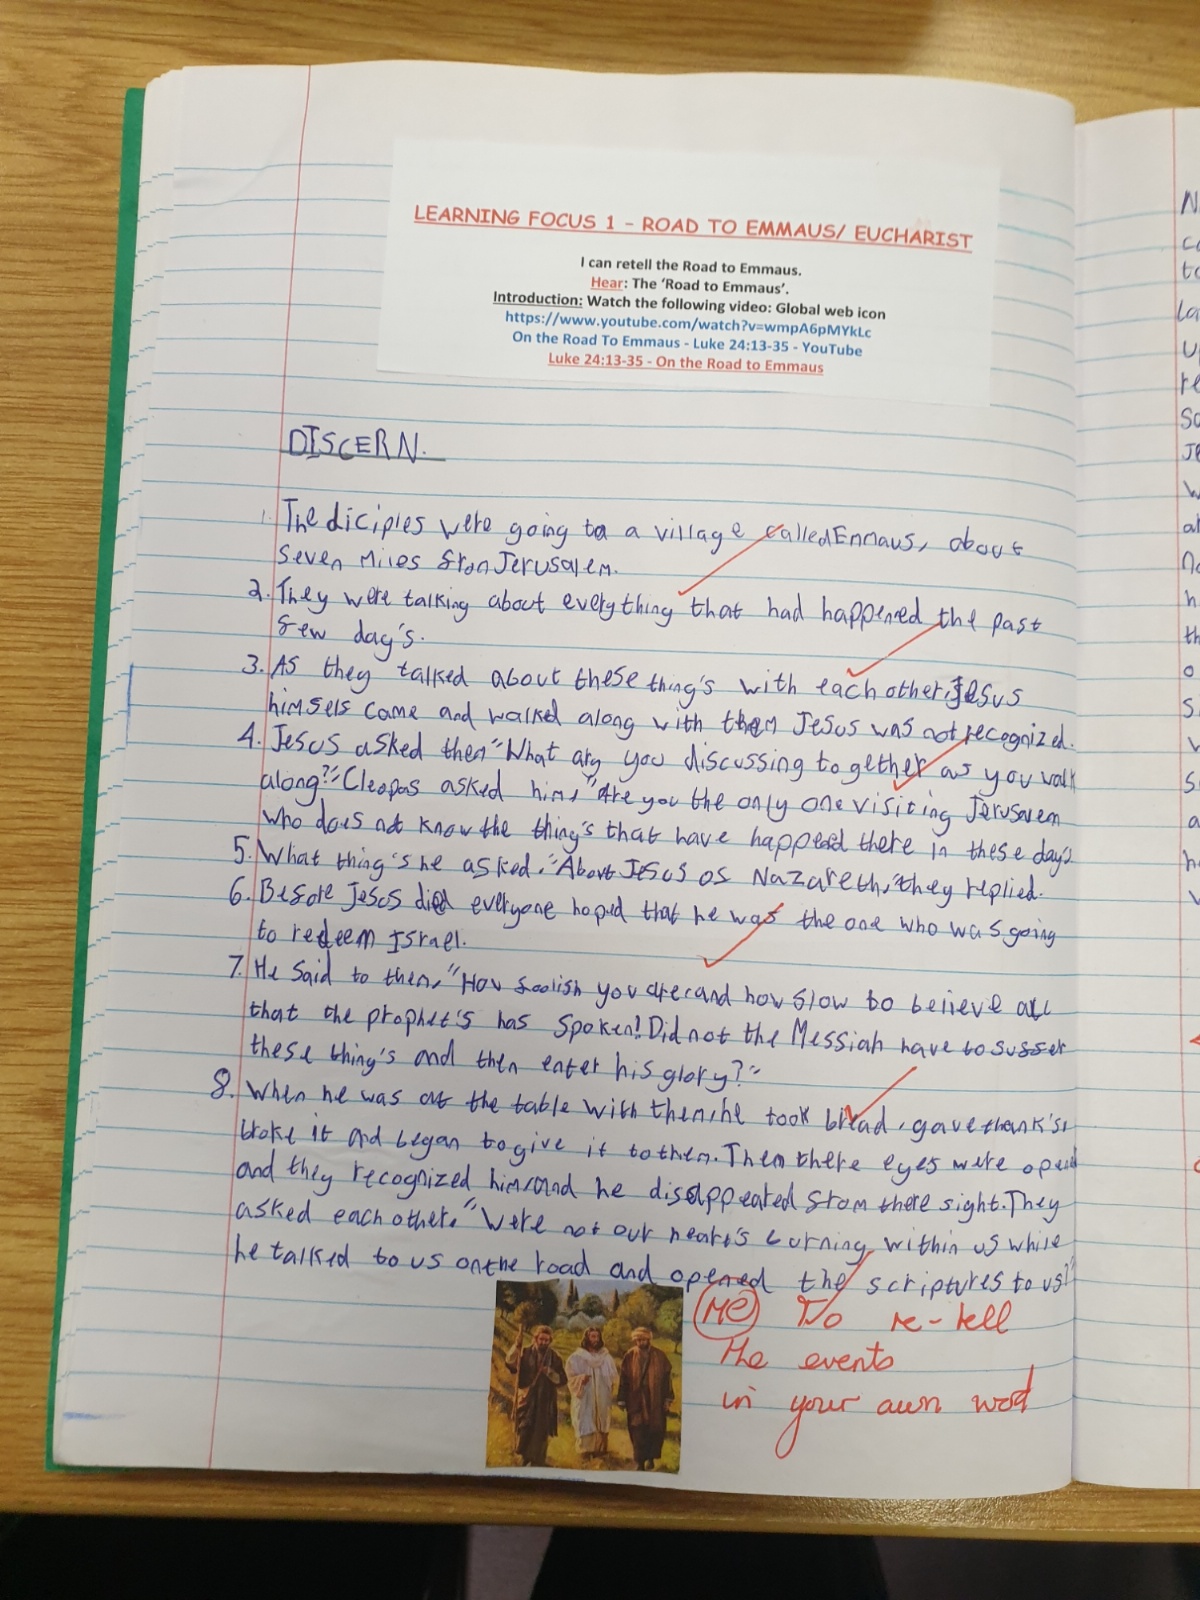 LEARNING FOCUS 1 – ROAD TO EMMAUS/ EUCHARIST
I can retell the Road to Emmaus.
Hear: The ‘Road to Emmaus’.
Introduction: Watch the following video: Global web icon
https://www.youtube.com/watch?v=wmpA6pMYkLc
On the Road To Emmaus - Luke 24:13-35 - YouTube
Luke 24:13-35 - On the Road to Emmaus
DISCERN.
1. The diciples were going to a village called Emmaus, about
seven miles from Jerusalem.
2. They were talking about everything that had happened the past
few day's.
3. As they talked about these thing's with each other, Jesus
himself came and walked along with them Jesus was not recognized.
4. Jesus asked them "What are you discussing together as you walk
along?" Cleopas asked him, "Are you the only one visiting Jerusalem
who does not know the thing's that have happend there in these days
5. What thing's he asked. "About Jesus of Nazareth," they replied.
6. Before Jesus died everyone hoped that he was the one who was going
to redeem Israel.
7. He said to them, "How foolish you are, and how slow to believe all
that the prophet's has spoken! Did not the Messiah have to suffer
these thing's and then enter his glory?"
8. When he was at the table with them, he took bread, gave thank's,
broke it and began to give it to them. Then there eyes were open
and they recognized him, and he disappeared from there sight. They
asked each other, "Were not our heart's burning within us while
he talked to us on the road and opened the scriptures to us?"
Me To re-tell
the events
in your own